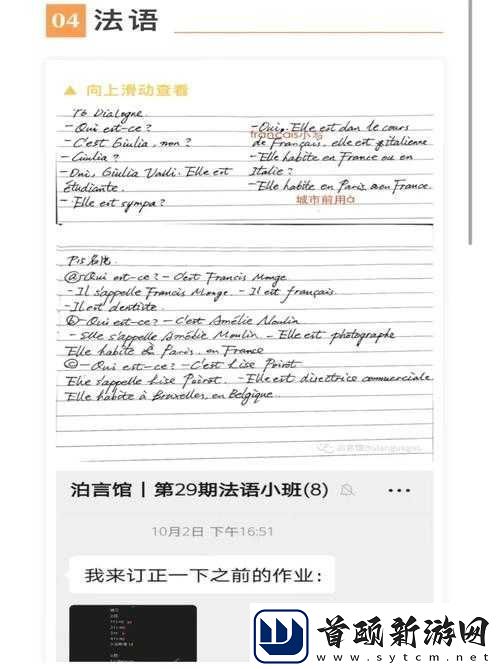 04 法语
▲ 向上滑动查看
T6 Dialogne.
- Qui est-ce ?
- C'est Giulia, non ?
- Giulia ?
- Oui, Giulia Valli. Elle est
étudiante.
- Elle est sympa ?
- Oui. Elle est dan le cours
français小写
de Français, elle est italienne
- Elle habite en France ou en
Italie ?
- Elle habite en Paris, en France.
城市前用à
P15
ⓐ Qui est-ce ? - C'est Francis Monge
- Il s'appelle Francis Monge. - Il est français.
- Il est dentiste.
ⓑ - Qui est-ce ? - C'est Amélie Moulin
- Elle s'appelle Amélie Moulin - Elle est photographe
Elle habite à Paris, en France
ⓒ - Qui est-ce ? - C'est Lise Poirot
Elle s'appelle Lise Poirot. - Elle est directrice commerciale
Elle habite à Bruxelles, en Belgique.
泊言馆 | 第29期法语小班(8)
10月2日 下午16:51
我来订正一下之前的作业：
首颐新游网
www.sytcm.net